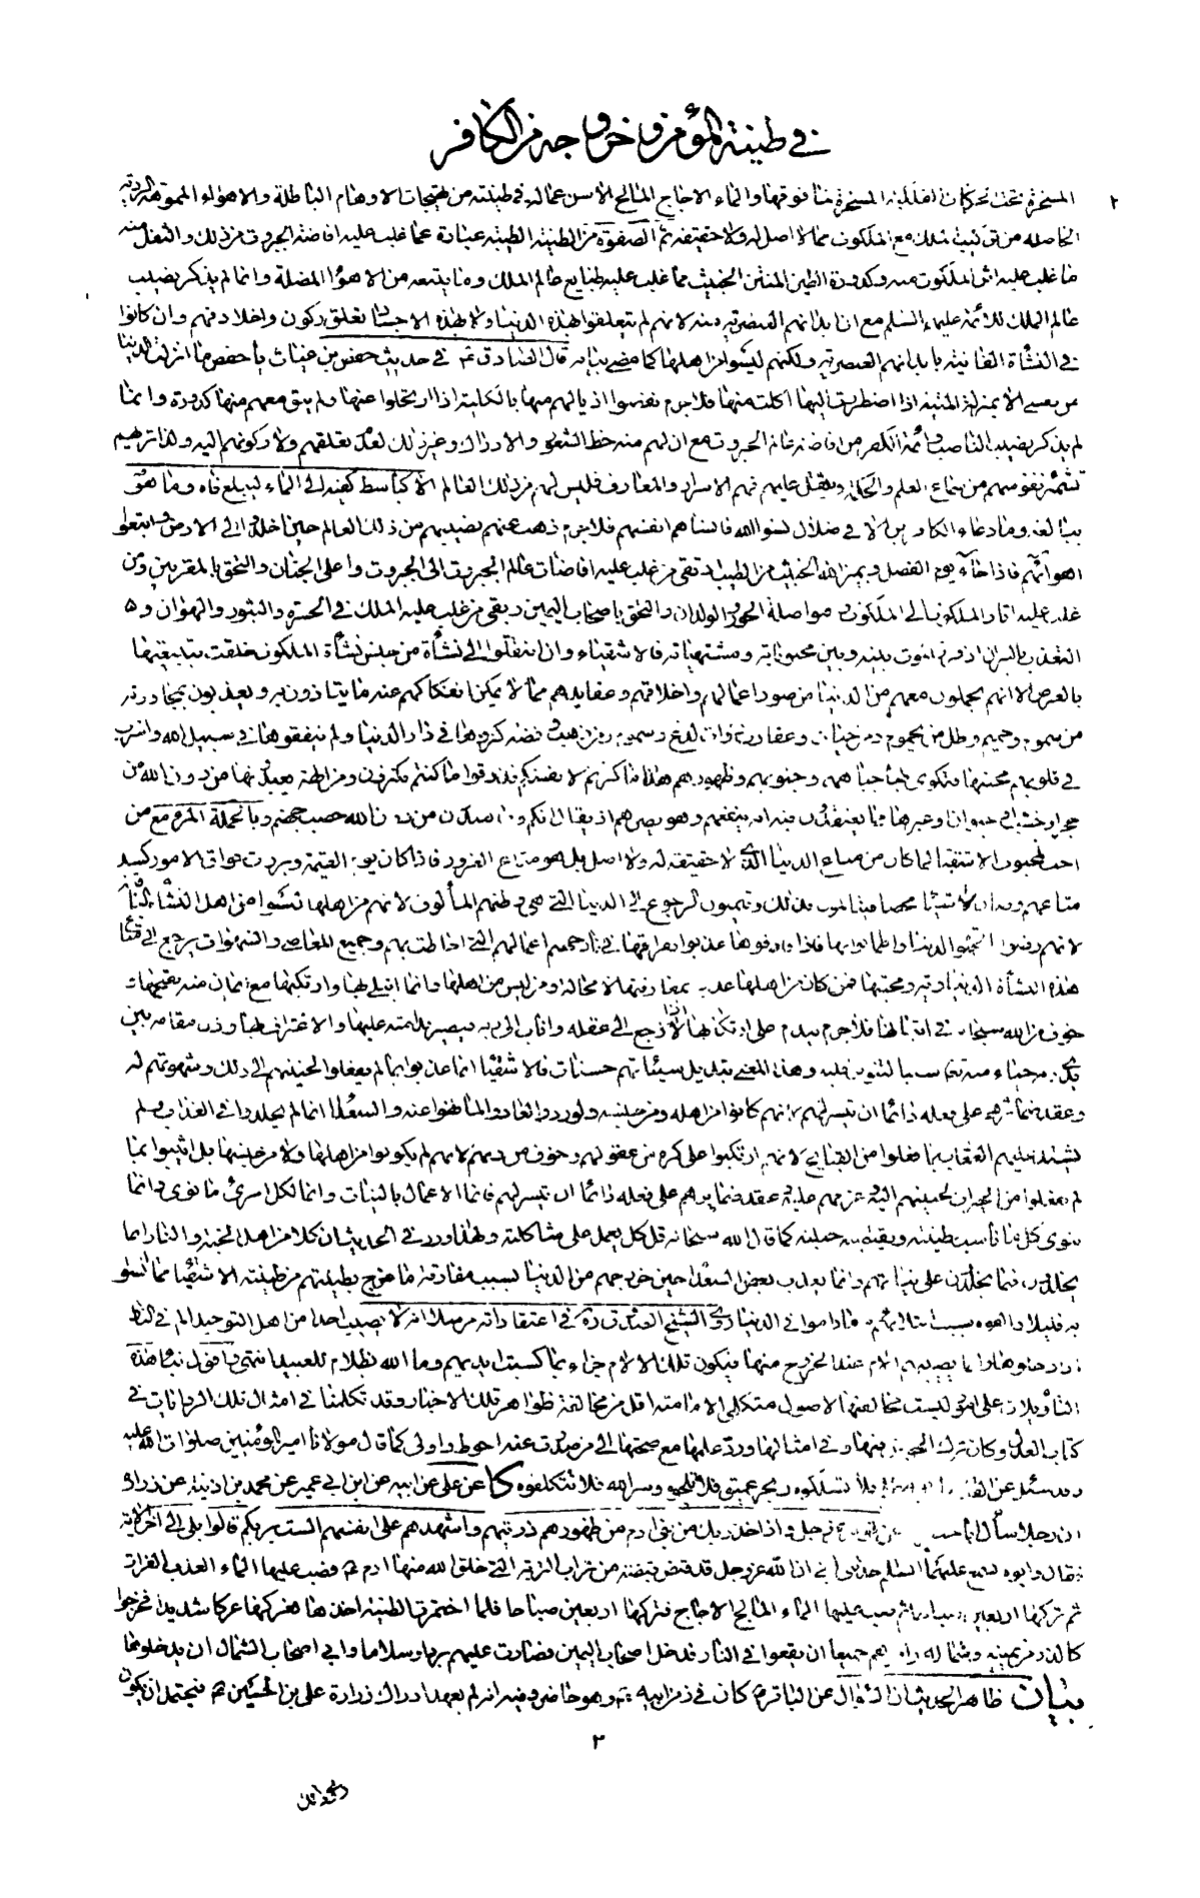 في طينة المؤمن و خروجه من الكافر
٢
المسخرة تحت حركات افلاكه المسخرة مما فوقها والماء الاجاج المالح الاسن عما له في طينته من تهيجات الاوهام الباطلة والاهواء المموهة الردية
الحاصلة من تركيب الملك مع الملكوت مما لا اصل له ولا حقيقة ثم الصفوة من الطينة الطيبة عبارة عما غلب عليه افاضة الجبروت من ذلك والثفل منه
ما غلب عليه اثر الملكوت منه وكدورة الطين المنتن الخبيث مما غلب عليه طبايع عالم الملك وما يتبعه من الاهواء المضلة وانما لم يذكر نصيب
عالم الملك للائمة عليهم السلم مع ان ابدانهم العنصرية منه لانهم لم يتعلقوا بهذه الدنيا ولا بهذه الاجساد تعلق ركون واخلاد فهم وان كانوا
في النشأة الفانية بابدانهم العنصرية ولكنهم ليسوا من اهلها كما مضى بيانه قال الصادق ع في حديث حفص بن غياث يا حفص ما انزلت الدنيا
من نفسي الا بمنزلة الميتة اذا اضطررت اليها اكلت منها فلاجرم نفضوا اذيالهم منها بالكلية اذا ارتحلوا عنها ولم يبق معهم منها كدورة وانما
لم يذكر نصيب الناصب وائمة الكفر من افاضة عالم الجبروت مع ان لهم منه حظ الشعور والادراك وغير ذلك لعدم تعلقهم به ولا ركونهم اليه ولذا تريهم
تشمئز نفوسهم من سماع العلم والحكمة ويثقل عليهم فهم الاسرار والمعارف فليس لهم من ذلك العالم الا كباسط كفيه الى الماء ليبلغ فاه وما هو
ببالغه وما دعاء الكافرين الا في ضلال نسوا الله فانساهم انفسهم فلاجرم ذهب عنهم نصيبهم من ذلك العالم حين اخلدوا الى الارض واتبعوا
اهوائهم فاذا جاء يوم الفصل وميز الله الخبيث من الطيب ارتقى من غلب عليه افاضات عالم الجبروت الى الجبروت واعلى الجنان والتحق بالمقربين ومن
غلب عليه اثار الملكوت الى الملكوت و مواصلة الحور والولدان والتحق باصحاب اليمين وبقي من غلب عليه الملك في الحسرة والثبور والهوان و
التعذب بالنيران اذ فرق الموت بينه وبين محبوباته ومشتهياته فالاشقياء وان انتقلوا الى نشأة من جنس نشأة الملكوت خلقت بتبعيتها
بالعرض الا انهم يحملون معهم من الدنيا من صور اعمالهم واخلاقهم وعقايدهم مما لا يمكن انفكاكهم عنه ما يتاذون به ويعذبون بمجاورته
من سموم وحميم وظل من يحموم ومن حيات وعقارب ذوات لدغ وسموم ومن ذهب وفضة كنزوها في دار الدنيا ولم ينفقوها في سبيل الله واشرب
في قلوبهم محبتها فتكوى بها جباههم وجنوبهم وظهورهم هذا ما كنزتم لانفسكم فذوقوا ما كنتم تكنزون ومن الهة يعبدونها من دون الله من
حجر او خشب او حيوان وغيرها مما يعتقدون فيه انه ينفعهم وهو يضرهم اذ يقال لهم انكم وما تعبدون من دون الله حصب جهنم وبالجملة المرء مع من
احب فمحبوب الاشقياء لما كان من متاع الدنيا الذي لا حقيقة له ولا اصل بل هو متاع الغرور فاذا كان يوم القيمة وبرزت حواق الامور كسد
متاعهم وصار لا شيئا محضا فيتالمون بذلك ويتمنون الرجوع الى الدنيا التي هي وطنهم المألوف لانهم من اهلها ليسوا من اهل النشأة الباقية
لانهم رضوا بالحيوة الدنيا واطمأنوا بها فاذا فارقوها عذبوا بفراقها في نار جهنم اعمالهم التي احاطت بهم وجميع المعاصي والشهوات يرجع الى متاع
هذه النشأة الدنياوية ومحبتها فمن كان من اهلها عذب بمفارقتها لا محالة ومن ليس من اهلها وانما ابتلى بها وارتكبها مع ايمان منه بقبحها و
خوف من الله سبحانه في اتيانها فلاجرم يندم على ارتكابها اذا رجع الى عقله واناب الى ربه فيصير ندامته عليها والاعتراف بها وذل مقامه بين
يدي ربه حياء منه تعالى سببا لتنوير قلبه وهذا معنى تبديل سيئاتهم حسنات فالاشقياء انما عذبوا بما لم يفعلوا لحنينهم الى ذلك وشهوتهم له
وعقد ضمائرهم على فعله دائما ان تيسر لهم لانهم كانوا من اهله ومن جنسه ولو ردوا لعادوا لما نهوا عنه والسعداء انما لم يخلدوا في العذاب ولم
يشتد عليهم العقاب بما فعلوا من القبايح لانهم ارتكبوا على كره من عقولهم وخوف من ربهم لانهم لم يكونوا من اهلها ولا من جنسها بل اثيبوا بما
لم يفعلوا من الخيرات لحنينهم اليه وعزمهم عليه وعقد ضمائرهم على فعله دائما ان تيسر لهم فانما الاعمال بالنيات وانما لكل امرئ ما نوى وانما
ينوي كل ما ناسب طينته ويقتضيه جبلته كما قال الله سبحانه قل كل يعمل على شاكلته ولهذا ورد في الحديث ان كلا من اهل الجنة والنار انما
يخلدون فيما يخلدون على نياتهم وانما يعذب بعض السعداء حين خروجهم من الدنيا بسبب مفارقة ما مزج بطينتهم من طينة الاشقياء مما انسوا
به قليلا والفوه بسبب ابتلائهم به ما داموا في الدنيا روى الشيخ الصدوق ره في اعتقاداته مرسلا انه لا يصيب احدا من اهل التوحيد الم في النار
اذا دخلوها وانما يصيبهم الالام عند الخروج منها فيكون تلك الالام جزاء بما كسبت ايديهم وما الله بظلام للعبيد انتهى واقول بناء هذه
التأويلات على امور ليست مخالفتها لاصول متكلمي الامامية اقل من مخالفة ظواهر تلك الاخبار وقد تكلمنا في امثال تلك الروايات في
كتاب العدل وكان ترك الخوض فيها وفي امثالها ورد علمها مع صحتها الى من صدرت عنه احوط واولى كما قال مولانا امير المؤمنين صلوات الله عليه
وقد سئل عن القدر طريق مظلم فلا تسلكوه وبحر عميق فلا تلجوه وسر الله فلا تتكلفوه كا عن علي عن ابيه عن ابن ابي عمير عن محمد بن اذينة عن زرارة
ان رجلا سأل ابا جعفر عن قوله عز وجل واذ اخذ ربك من بني ادم من ظهورهم ذريتهم واشهدهم على انفسهم الست بربكم قالوا بلى الى اخر الاية
فقال وابوه يسمع عليهما السلم حدثني ابي ان الله عز وجل قد قبض قبضة من تراب التربة التي خلق الله منها ادم ع فصب عليها الماء العذب الفرات
ثم تركها اربعين صباحا ثم صب عليها الماء المالح الاجاج فتركها اربعين صباحا فلما اختمرت الطينة اخذها فعركها عركا شديدا فخرجوا
كالذر من يمينه وشماله وامرهم جميعا ان يقعوا في النار فدخل اصحاب اليمين فصارت عليهم بردا وسلاما وابى اصحاب الشمال ان يدخلوها
بيان ظاهر الحديث ان السؤال عن الباقر ع كان في زمن ابيه ع وهو حاضر وفيه انه لم يعهد ادراك زرارة علي بن الحسين ع فيحتمل ان يكون
٢